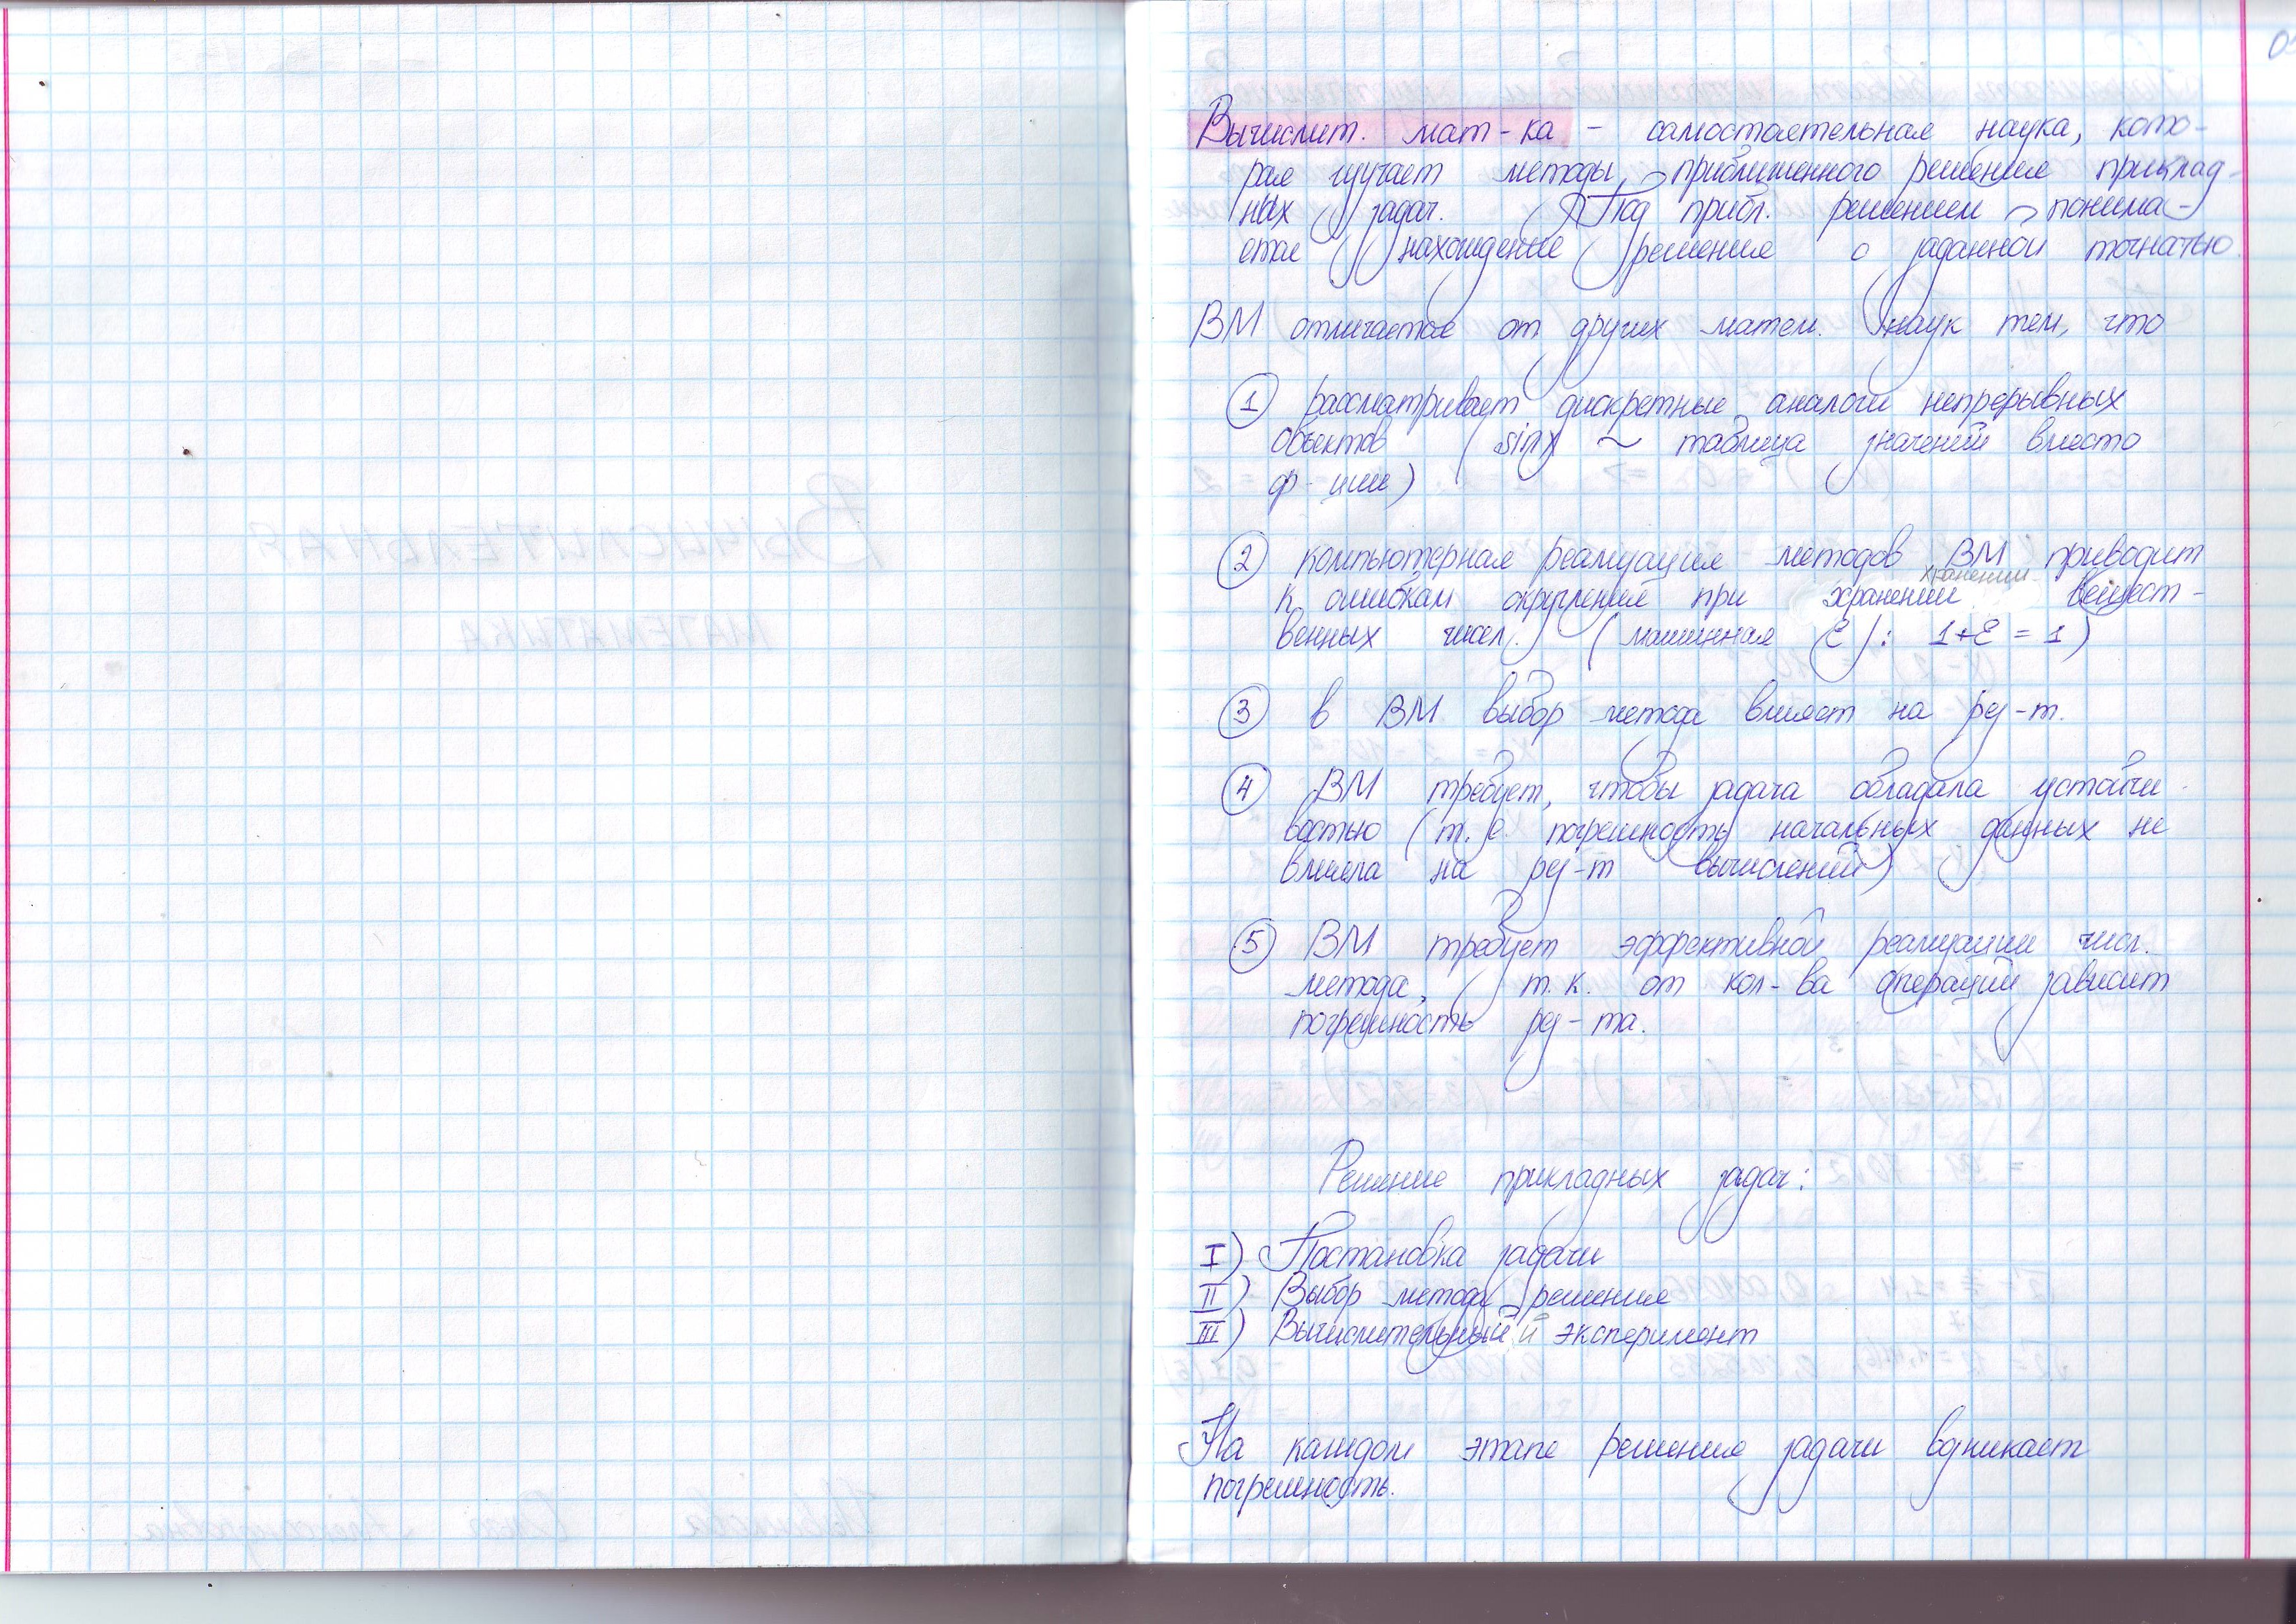 Вычислит. мат-ка – самостоятельная наука, кото-
рая изучает методы приближенного решения приклад-
ных задач. Под прибл. решением понима-
ется нахождение решения с заданной точнатью.
ВМ отличается от других матем. наук тем, что
1 рассматривает дискретные аналоги непрерывных
объектов (sin x ~ таблица значений вместо
ф-ции)
2 компьютерная реализация методов ВМ приводит
хранении
к ошибкам округления при хранении вещест-
венных чисел. (машинная ε): 1+ε = 1)
3 в ВМ выбор метода влияет на рез-т.
4 ВМ требует, чтобы задача обладала устойчи-
востью (т.е. погрешность начальных данных не
влияла на рез-т вычислений)
5 ВМ требует эффективной реализации числ.
метода, т.к. от кол-ва операций зависит
погрешность рез-та.
Решение прикладных задач:
I) Постановка задачи
II) Выбор метода решения
III) Вычислительный эксперимент
На каждом этапе решения задачи возникает
погрешность.
ВЫЧИСЛИТЕЛЬНАЯ
МАТЕМАТИКА